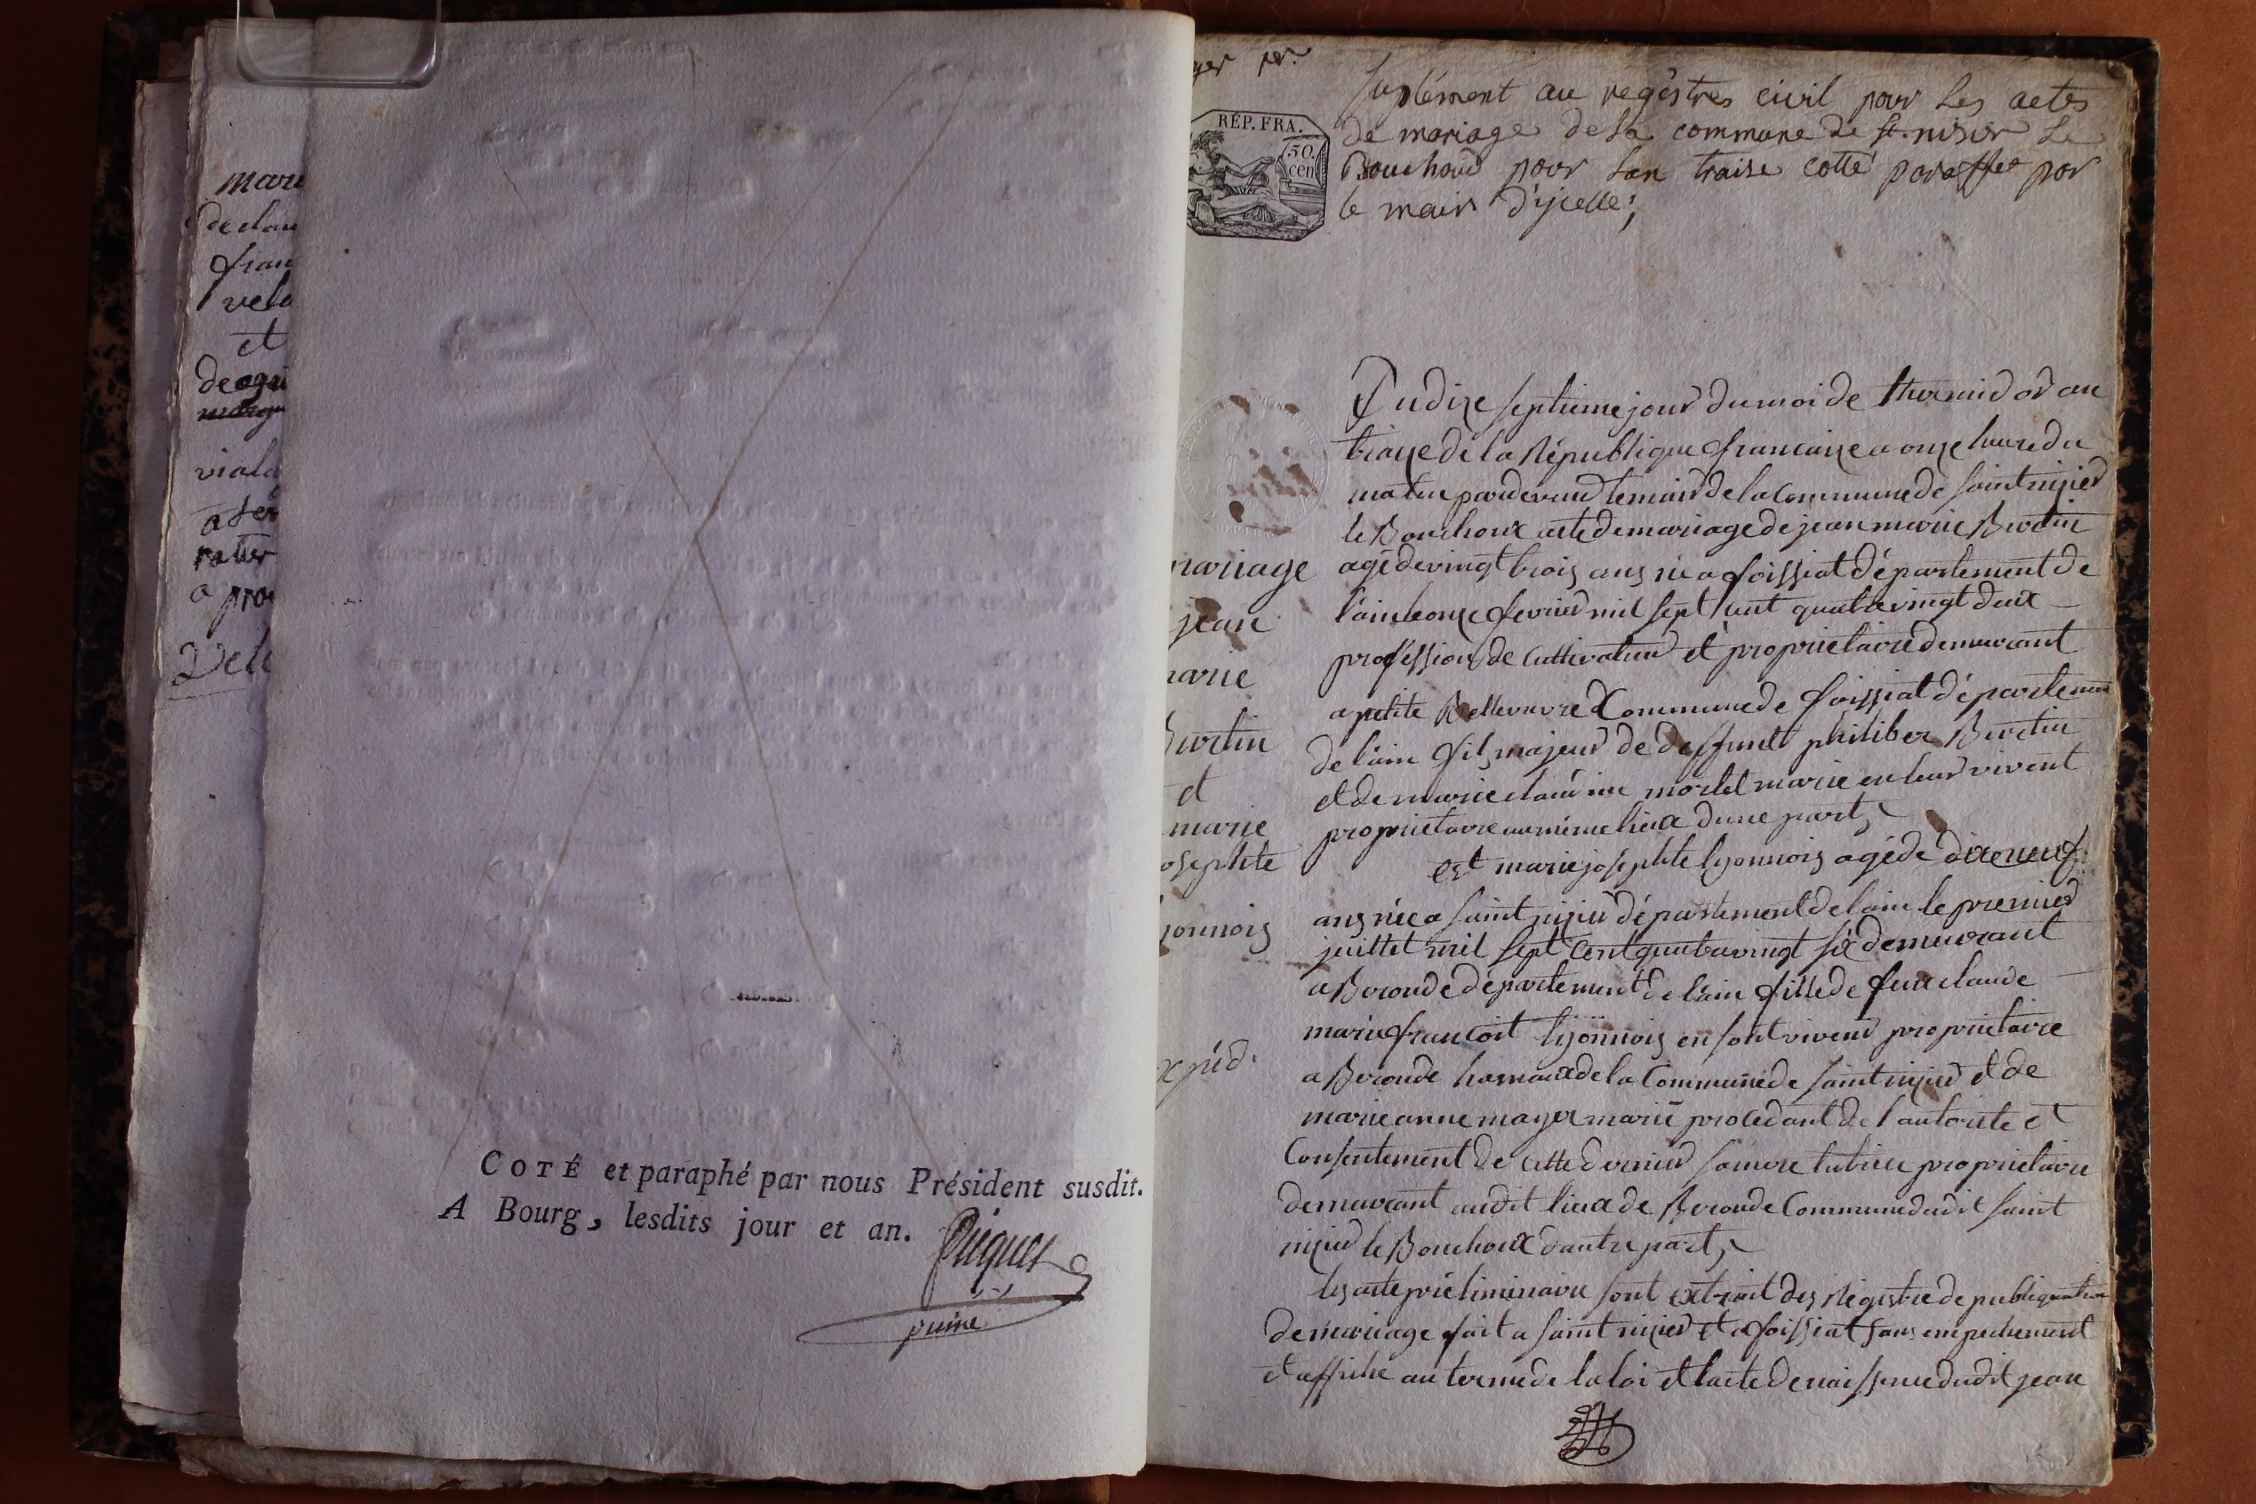 mari
declau
fran
vela
et
de agri
viala
a ser
ratier
a pro
Dele
COTÉ et paraphé par nous Président susdit.
A Bourg, lesdits jour et an.
Piquet
puiné
RÉP. FRA.
50.
cen
Suplément au regéstres civil pour les actes
de mariage de la commune de st. nisier le
Bouchoud pour l'an traise cotté paraffer par
le mair d'ycelle;
mariage
jean
marie
Burtin
et
marie
josephte
lyonnois
expéd.
Du dixe septieme jour du moi de thermid or an
traize de la République francaize a onze heure du
matin pardevend le mair de la Commune de saint nizier
le Bouchoux acte de mariage de jean marie Burtin
agé de vingt trois ans né a foissiat département de
l'ain le onze fevrier mil sept cent quatre vingt deux
profession de cultivateur et proprietaire demeurant
a petite Bellevavre Commune de foissiat départemen
de l'ain fils majeur de deffunt philiber Burtin
et de marie claudine morlet marié en leur vivent
proprietaire au même lieux d'une part,
est marie josephte lyonnois agé de dixe neuf
ans née a saint nizier département de l'ain le premier
juillet mil sept cent quatre vingt six demeurant
a Beronde département de l'ain fille de feux claude
marie francoit lyonnois en sont vivent proprietaire
a Beronde hamaux de la Commune de saint nizier et de
marie anne mayer marié procedant de l'autorité et
Consentement de cette dernier sa mere tutrice proprietaire
demeurant audit lieux de Beronde Commune dudit saint
nizier le Bouchoux d'autre part,
les acte préliminaire sont extrait des Régistre de publiquation
de mariage fait a saint nizier et a foissiat sans empechement
et affiché au terme de la loi et l'acte de naissence dudit jean